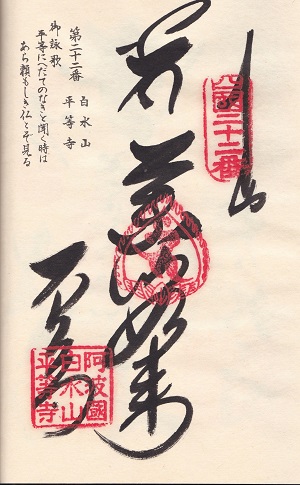 四國二十二番
薬師如来
平等寺
阿波國
白水山
平等寺
第二十二番 白水山 平等寺
御詠歌
平等にへだてのなきと聞く時は
あら頼もしき仏とぞ見る